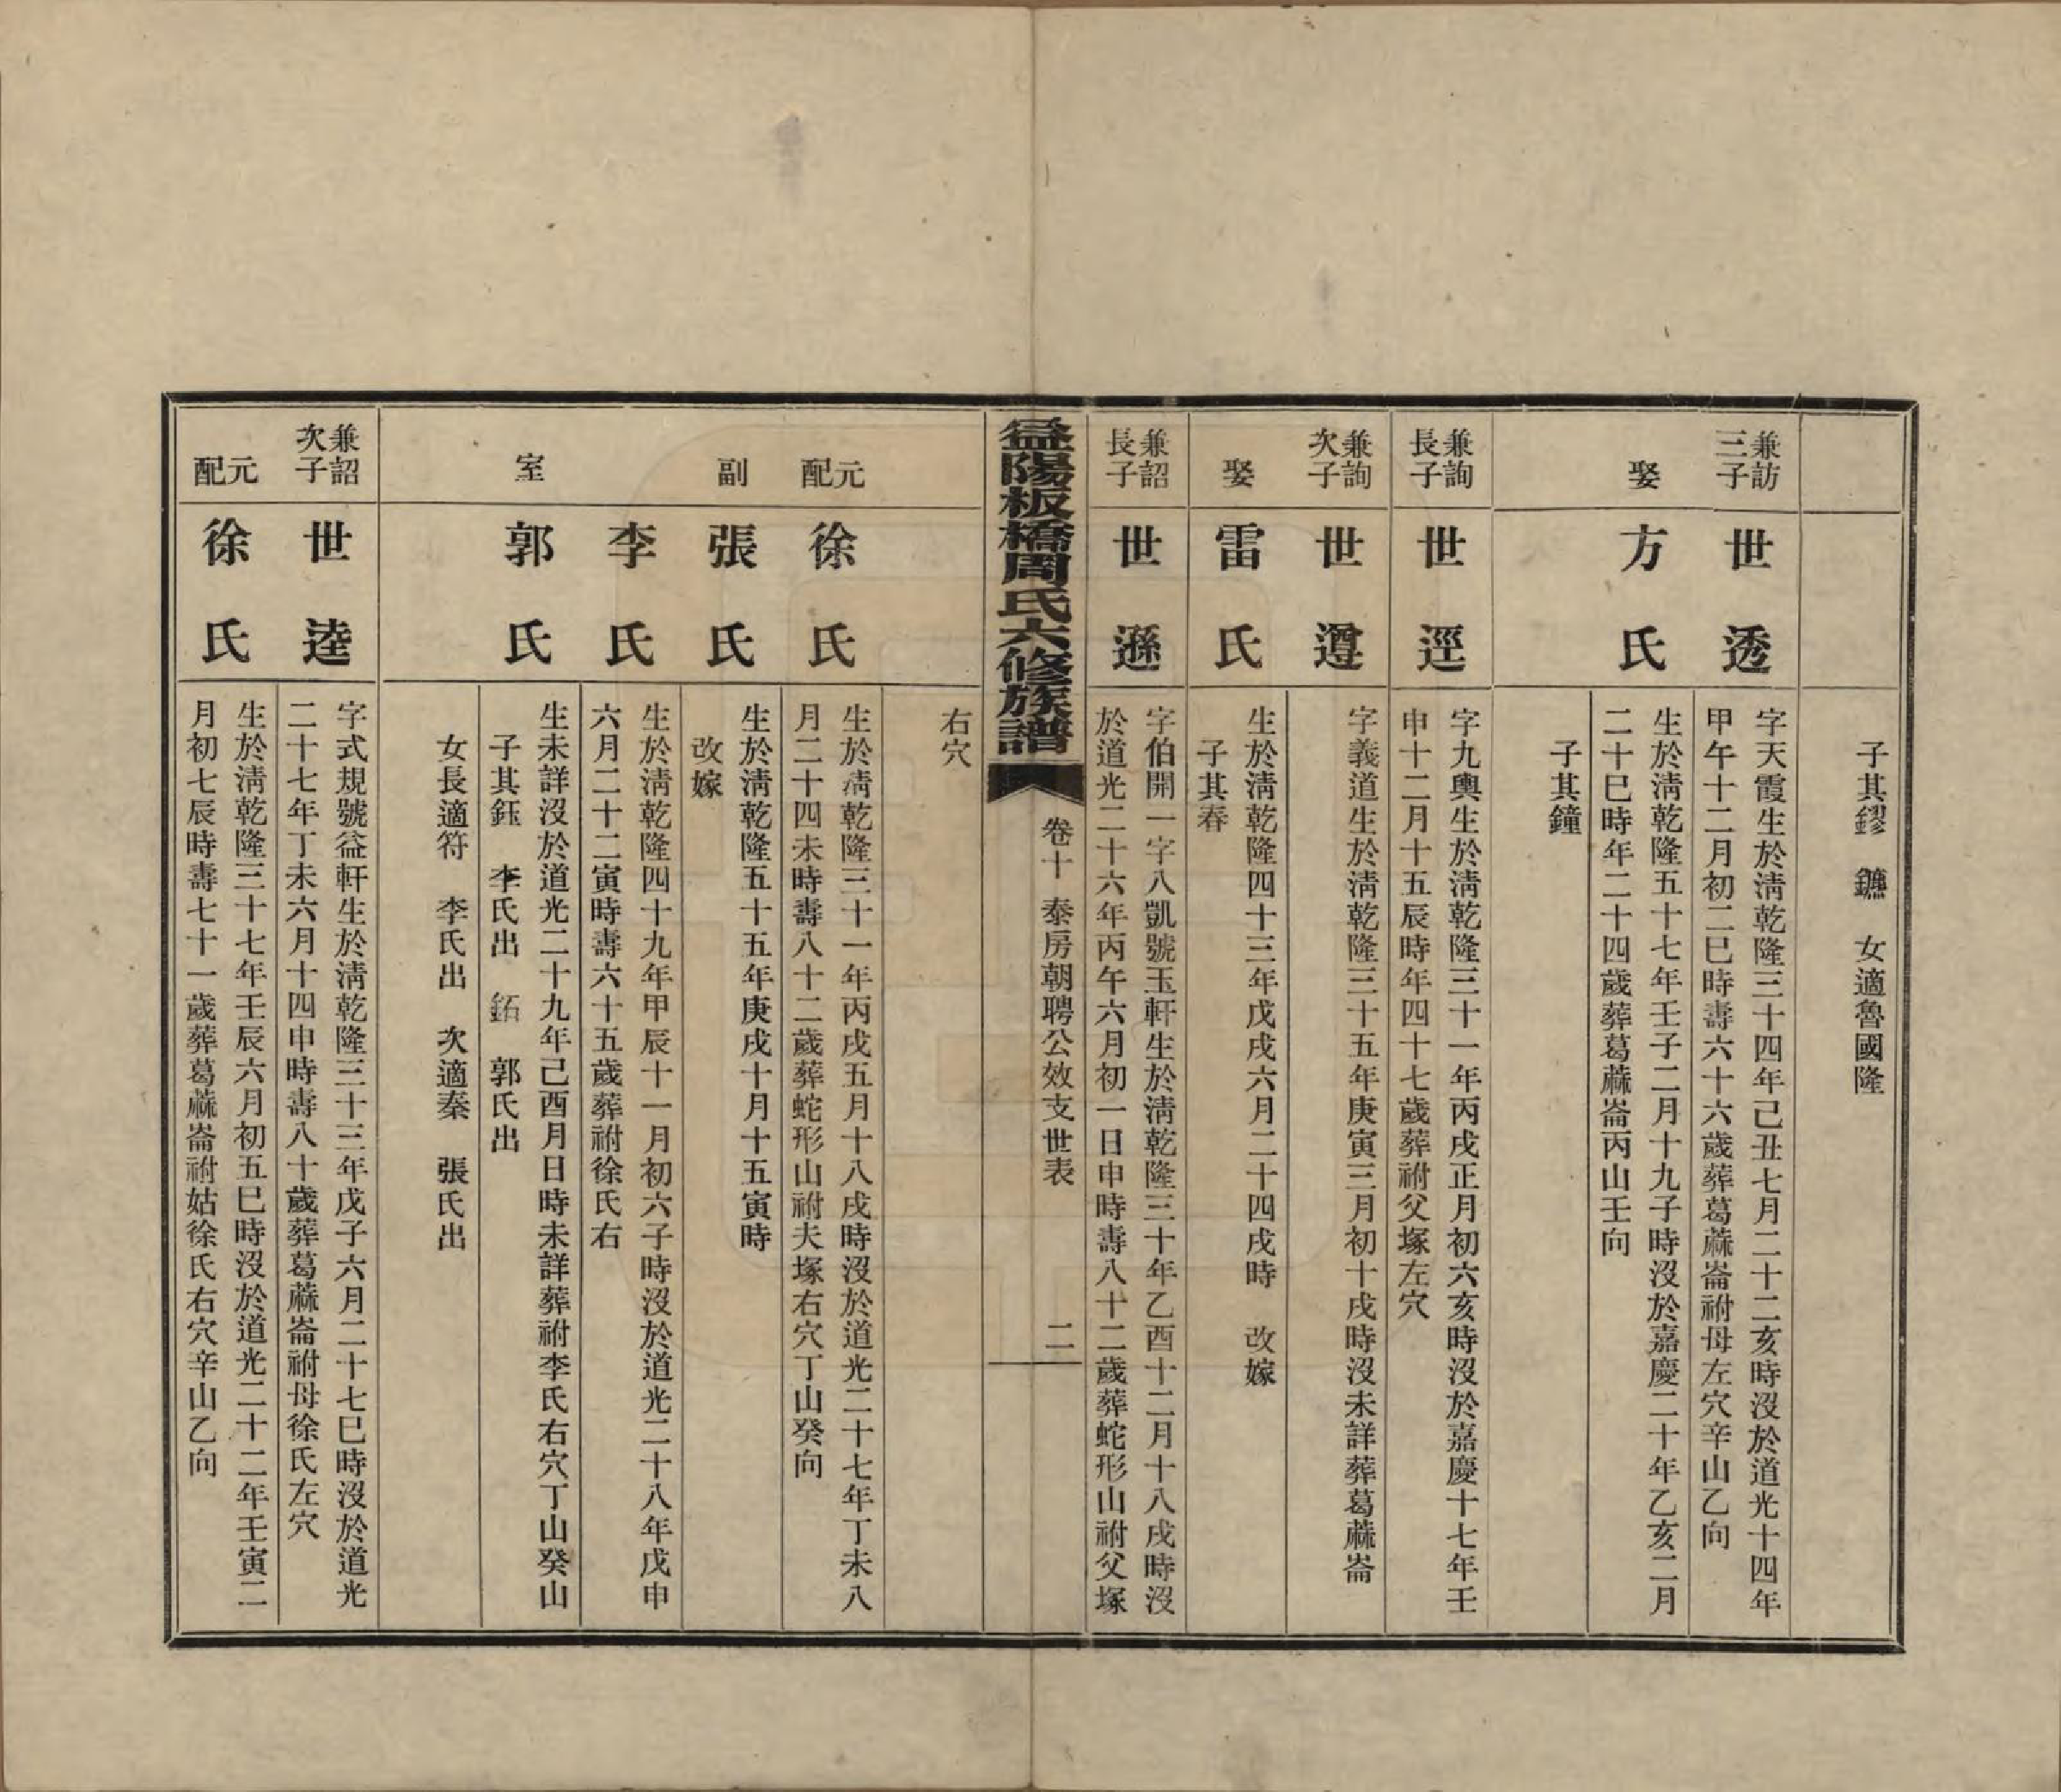 子其鏐　鑣　女適魯國隆
兼訪
三子
世透
字天霞生於淸乾隆三十四年己丑七月二十二亥時沒於道光十四年
甲午十二月初二巳時壽六十六歲葬葛蔴崙祔母左穴辛山乙向
娶
方氏
生於淸乾隆五十七年壬子二月十九子時沒於嘉慶二十年乙亥二月
二十巳時年二十四歲葬葛蔴崙丙山壬向
子其鐘
兼詢
長子
世逕
字九輿生於淸乾隆三十一年丙戌正月初六亥時沒於嘉慶十七年壬
申十二月十五辰時年四十七歲葬祔父塚左穴
兼詢
次子
世遵
字義道生於淸乾隆三十五年庚寅三月初十戌時沒未詳葬葛蔴崙
娶
雷氏
生於淸乾隆四十三年戊戌六月二十四戌時　改嫁
子其春
兼詔
長子
世遜
字伯開一字八凱號玉軒生於淸乾隆三十年乙酉十二月十八戌時沒
於道光二十六年丙午六月初一日申時壽八十二歲葬蛇形山祔父塚
益陽板橋周氏六修族譜
卷十　泰房朝聘公效支世表
二
右穴
元配
徐氏
生於淸乾隆三十一年丙戌五月十八戌時沒於道光二十七年丁未八
月二十四未時壽八十二歲葬蛇形山祔夫塚右穴丁山癸向
副
張氏
生於淸乾隆五十五年庚戌十月十五寅時
改嫁
李氏
生於淸乾隆四十九年甲辰十一月初六子時沒於道光二十八年戊申
六月二十二寅時壽六十五歲葬祔徐氏右
室
郭氏
生未詳沒於道光二十九年己酉月日時未詳葬祔李氏右穴丁山癸山
子其鈺　李氏出　䤩　郭氏出
女長適符　李氏出　次適秦　張氏出
兼詔
次子
世逵
字式規號益軒生於淸乾隆三十三年戊子六月二十七巳時沒於道光
二十七年丁未六月十四申時壽八十歲葬葛蔴崙祔母徐氏左穴
元配
徐氏
生於淸乾隆三十七年壬辰六月初五巳時沒於道光二十二年壬寅二
月初七辰時壽七十一歲葬葛蔴崙祔姑徐氏右穴辛山乙向